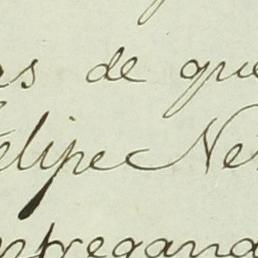 as de que
Felipe Ne
entregand